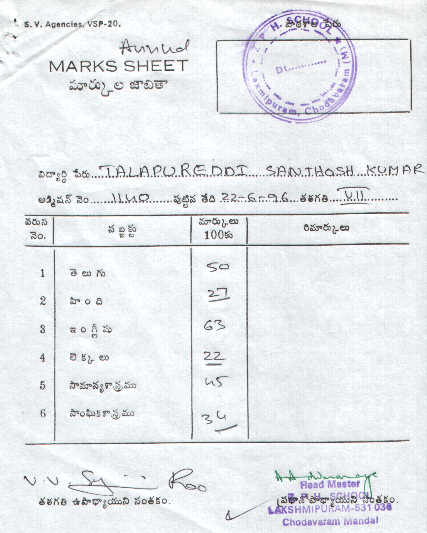 S. V. Agencies, VSP-20.
పాఠశాల పేరు
Annual
MARKS SHEET
మార్కుల జాబితా
Z. P. H. SCHOOL (M)
Dt.
Laxmipuram, Chodavaram
విద్యార్థి పేరు...TALAPUREDDI SANTHOSH KUMAR
అడ్మిషన్ నెం...1140...పుట్టిన తేది 22-6-96 తరగతి...VII
వరుస నెం. సబ్జక్టు మార్కులు 100కు రిమార్కులు
1 తెలుగు 50
2 హింది 27
3 ఇంగ్లీషు 63
4 లెక్కలు 22
5 సామాన్యశాస్త్రము 45
6 సాంఘికశాస్త్రము 34
తరగతి ఉపాధ్యాయుని సంతకం. ప్రధాన ఉపాధ్యాయుని సంతకం.
Head Master
Z. P. H. SCHOOL
LAKSHMIPURAM-531 036
Chodavaram Mandal